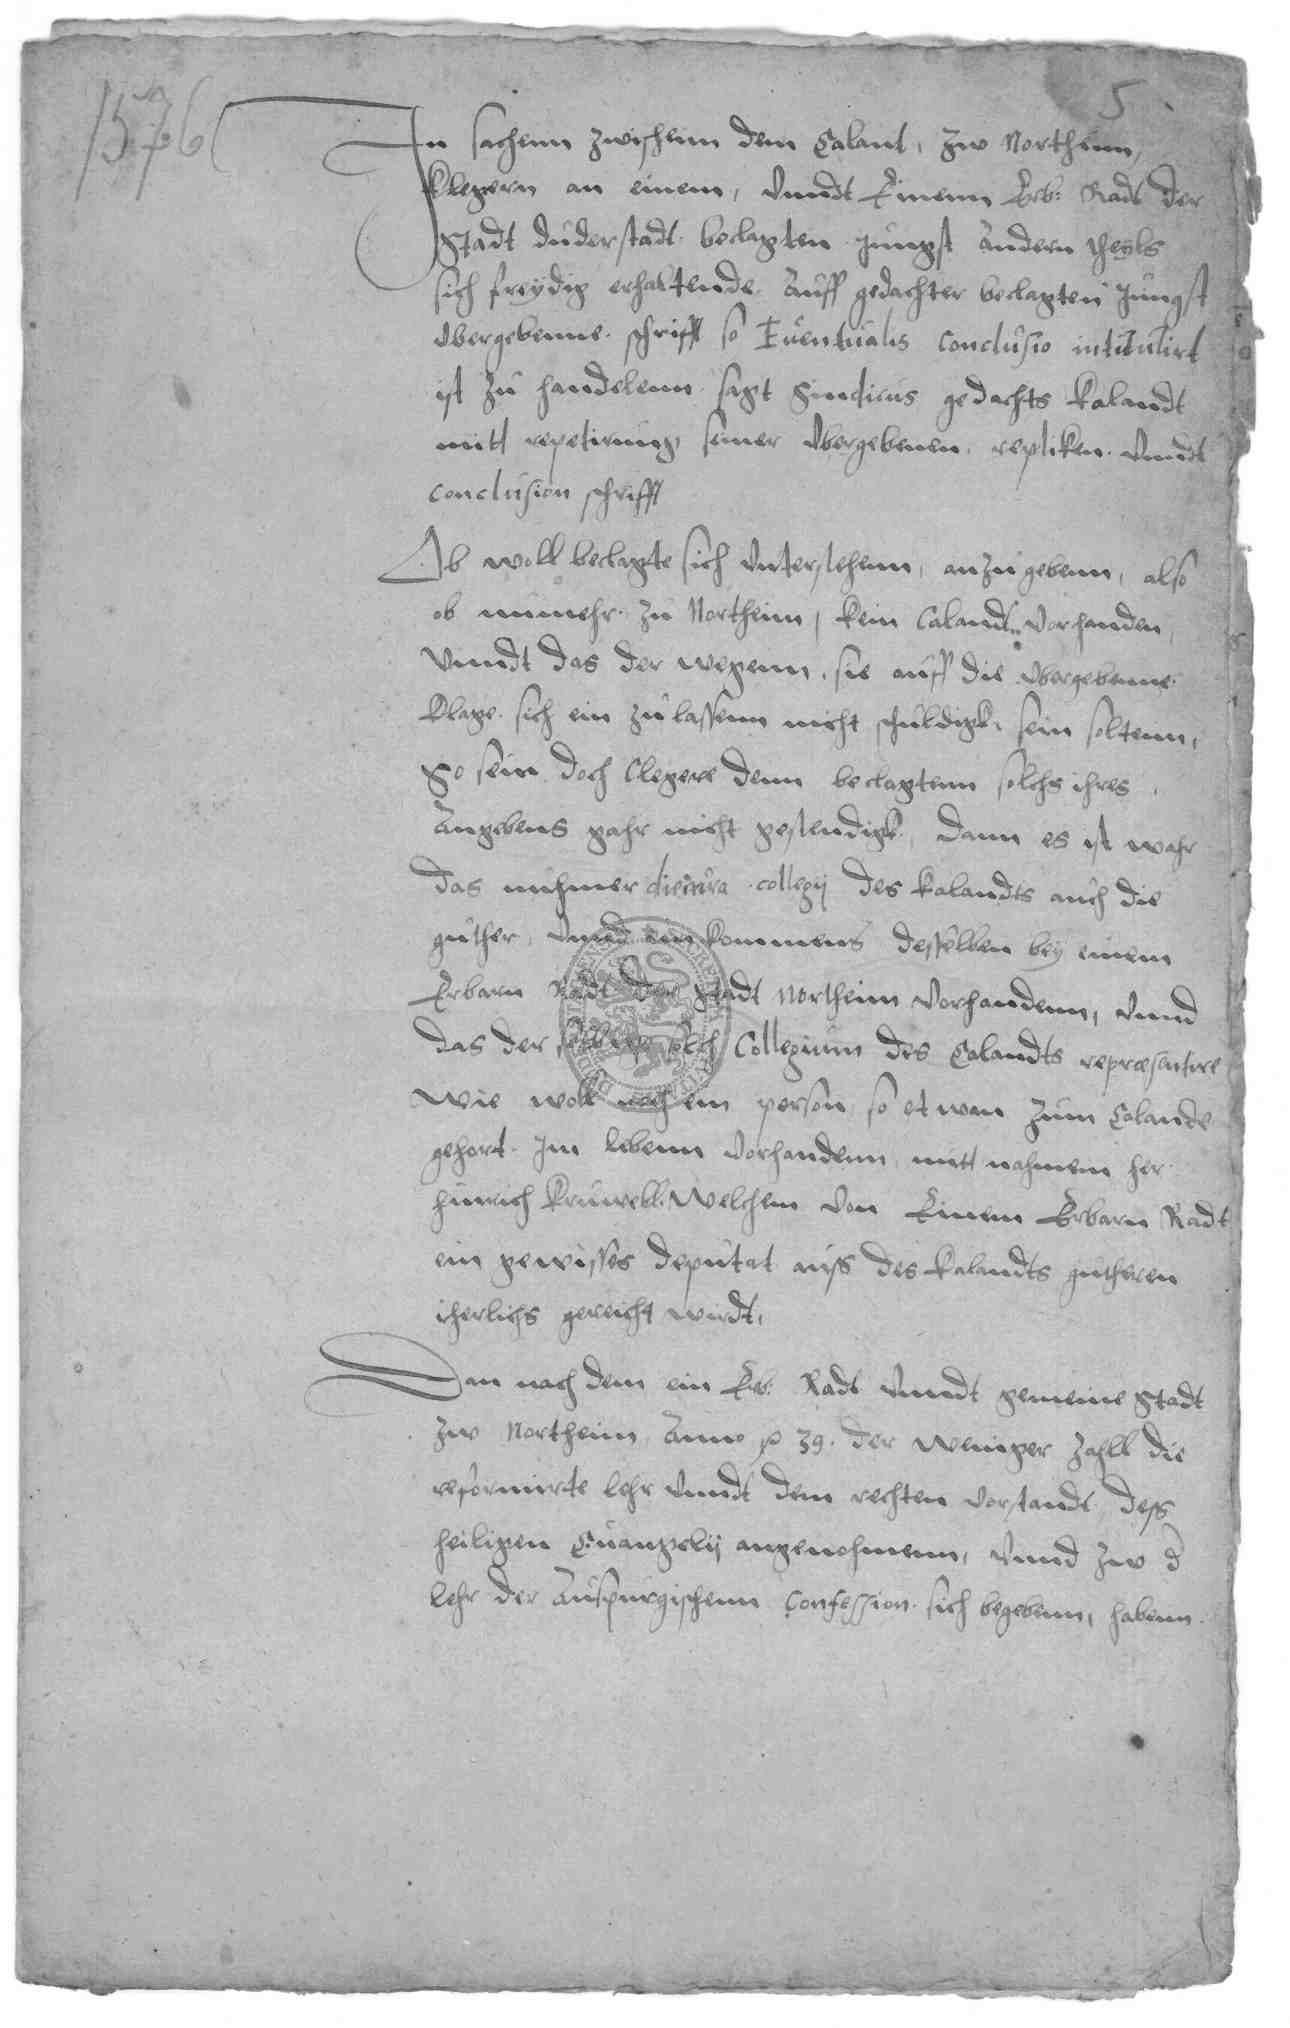 1576
5
In sachenn zwischenn dem Calant, zw Northeim,
Klegern an einem, Vnndt Einenn Erb: Radt der
Stadt duderstadt beclagten Jungst Andern theyls
sich erhaltende Auff gedachter beclagten Jungst
vbergebenne schrifft so Euentualis conclusio intitulirt
ist zu handelenn sagt Sindicus gedachts Kalandt
mitt repetirung seiner vbergebenen repliken Vnndt
conclusion schrifft
Ob woll beclagte sich vnterstehenn, anzugebenn, also
ob numehr zu Northeim, kein Calandt vorhanden,
Vnndt das der wegenn, sie auff die vbergebenne
Klage sich ein zulassenn nicht schuldigk, sein soltenn,
So sein doch Clegere denn beclagtenn solchs ihres
Angebens gahr nicht gestendigk, dann es ist wahr
das nuhmer collegij des Kalandts auch die
guther, Vnnd einkommens desselben bey einem
Erbarn Radt der Stadt Northeim Vorhandenn, Vnnd
das der selbige solch Collegium des Calandts repræsentire
Wie woll noch ein person, so etwan zum Calande
gehort Im lebenn Vorhandenn mitt nahmem her
hinrich Kruwell. Welchem von Einem Erbarn Radt
ein gewisses deputat auss des Kalandts gutheren
iherlichs gereicht wirdt,
Dan nach dem ein Erb: Radt Vnndt gemeine Stadt
zw Northeim Anno 39. der weniger zahll die
reformirte lehr Vnndt dem rechten vorstandt dess
heiligen Euangelij angenohmenn, Vnnd zw d
lehr der Auspurgischenn Confession sich begebenn, habenn